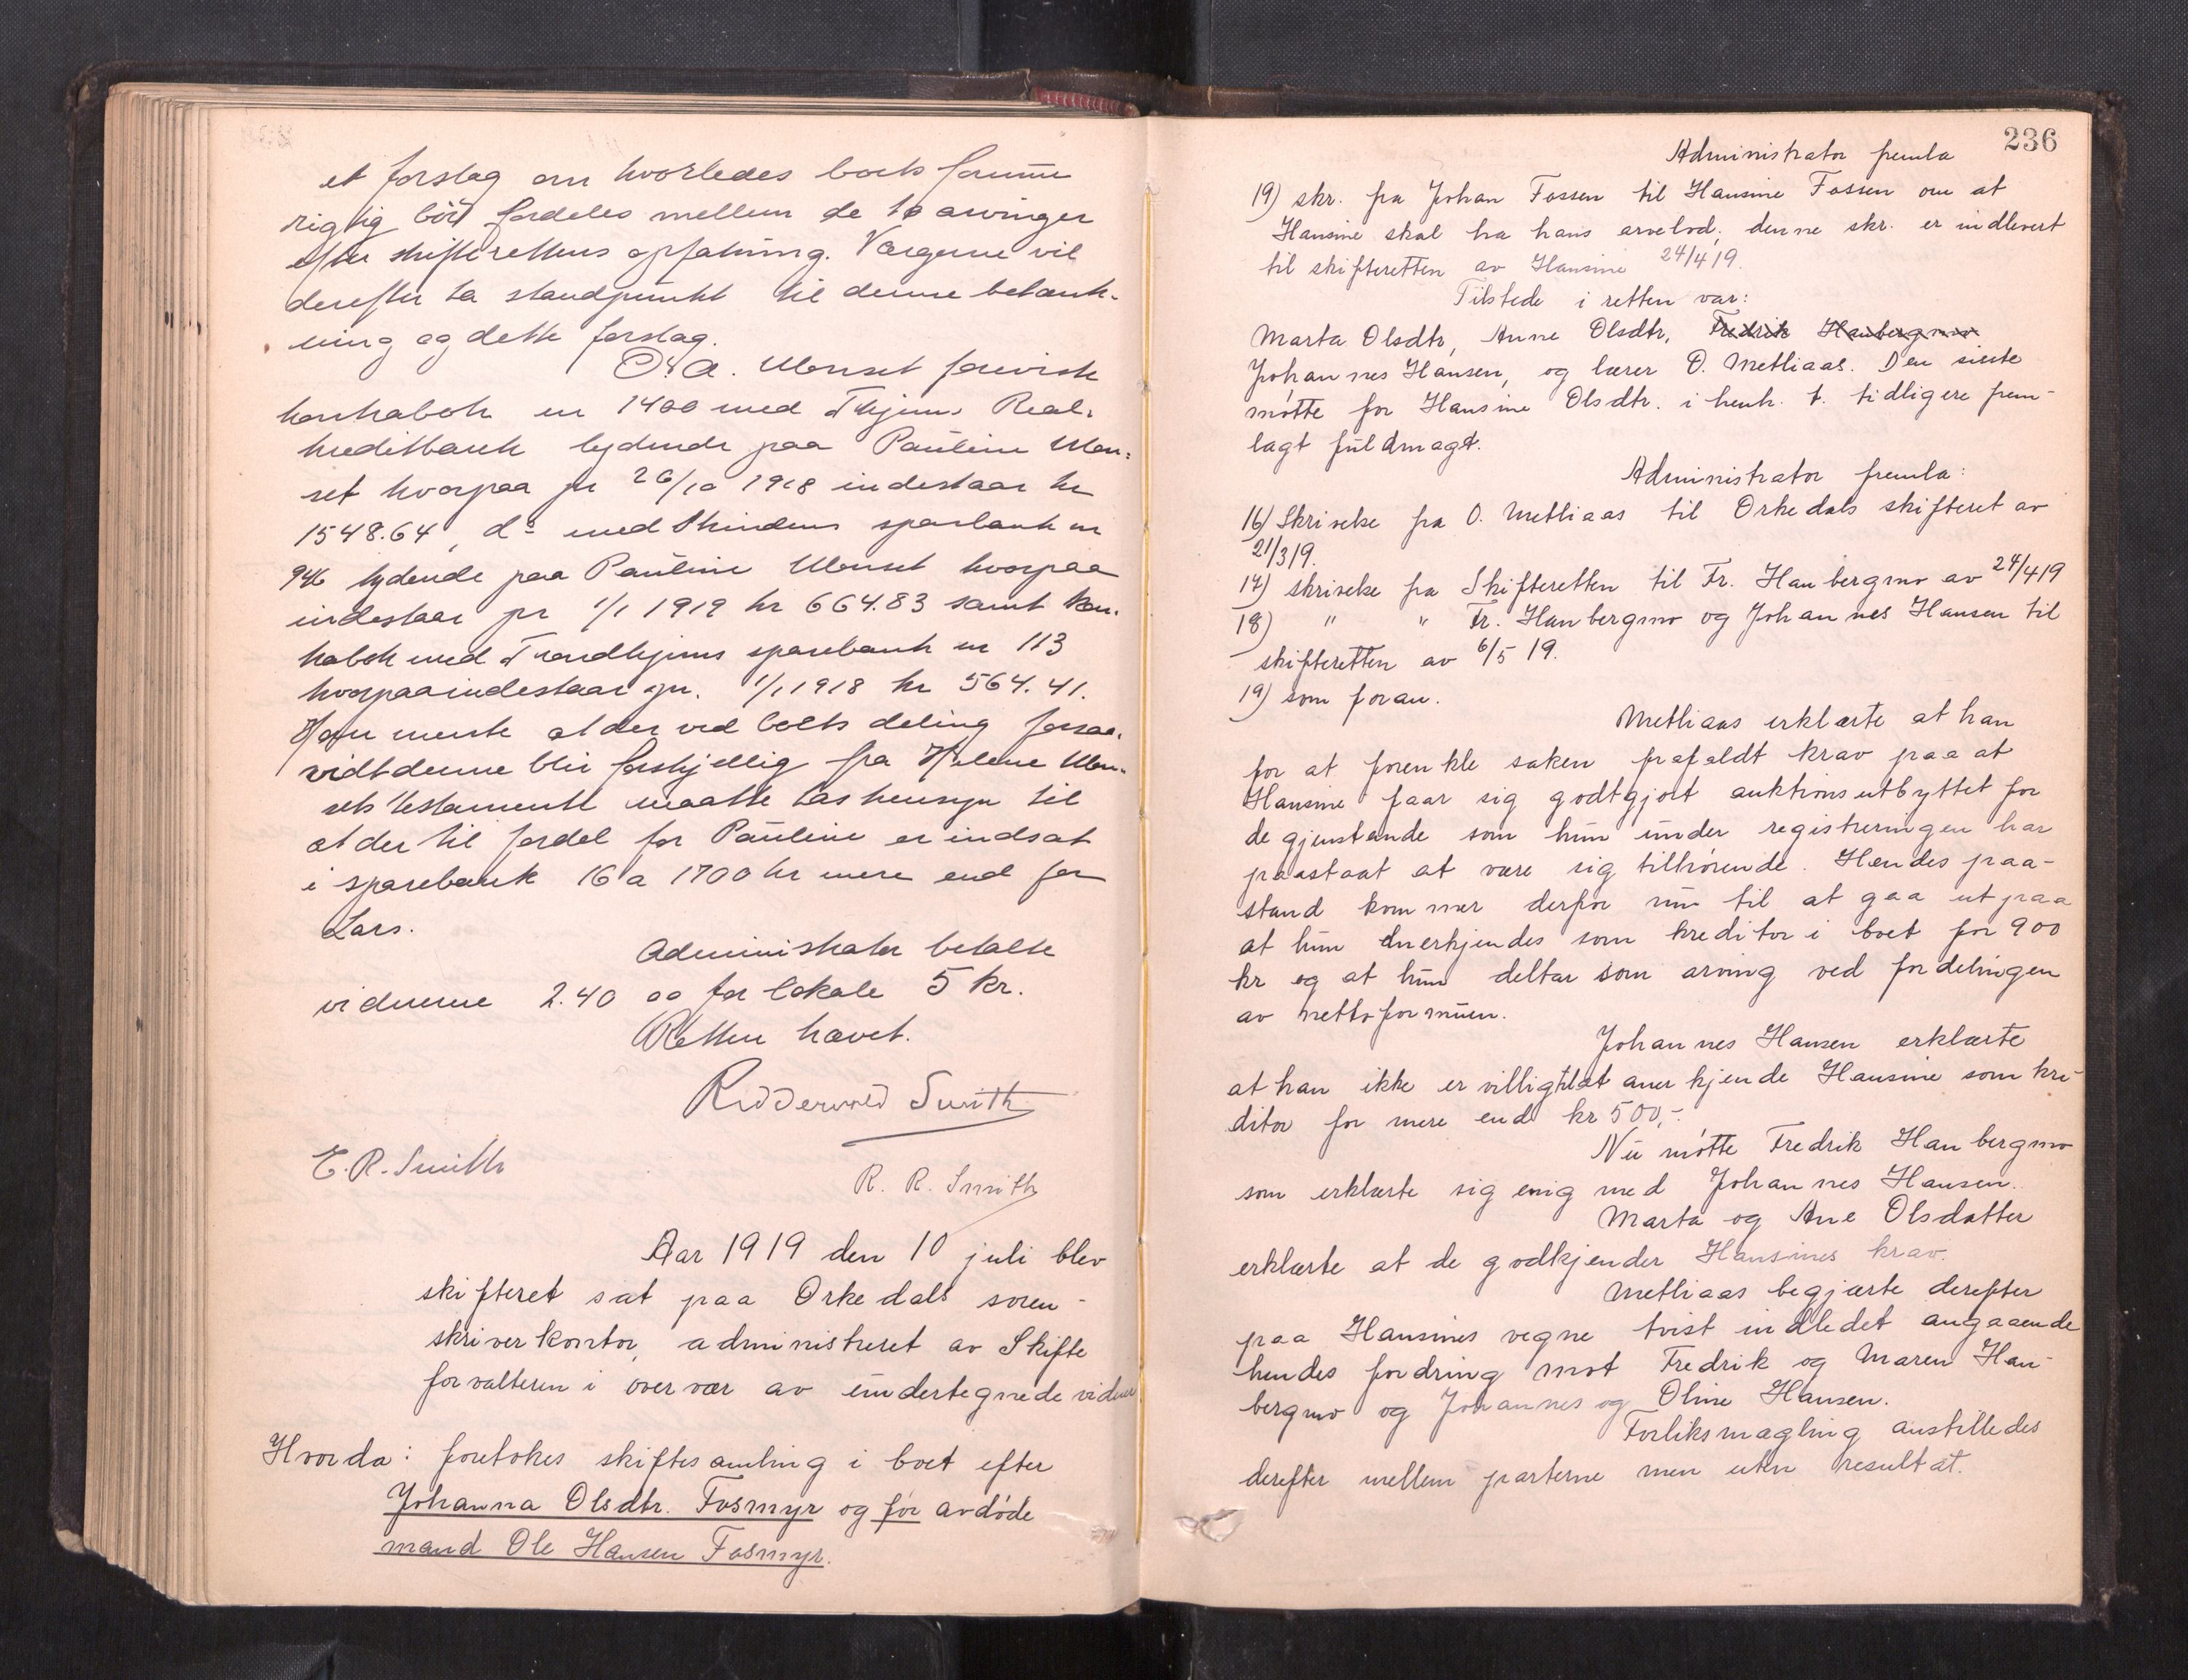 et forslag om hvorledes boets formue
rigtig bör fordeles mellem de to arvinger
efter skifterettens opfatning. Vergerne vil
derefter ta standpunkt til denne betænk-
ning og dette forslag.
O. A. Monset foreviste
kontrabok nr 1400 med Thjems Real-
kreditbank lydende paa Pauline Mon-
set hvorpaa pr 26/10 1918 indestaar kr
1548.64, do med Strindens sparbank nr
946 lydende paa Pauline Monset hvorpaa
indestaar pr 1/1 1919 kr 664.83 samt kon-
trabok med Trondhjems sparebank nr 113
hvorpaa indestaar pr. 1/1 1918 kr 564.41.
Han mente at der ved boets deling forsaa-
vidt denne blir forskjellig fra Helene Mon-
sets testamente maatte tas hensyn til
at der til fordel for Pauline er indsat
i sparebank 16 a 1700 kr mere end for
Lars.
Administrator betalte
vidnerne 2.40 og for lokale 5 kr.
Retten hævet.
Ridderwold Smith
E. R. Smith
R. R. Smith
Aar 1919 den 10 juli blev
skifteret sat paa Orkedals soren-
skriverkontor, administreret av Skifte
forvalteren i overvær av undertegnede vidner
Hvorda: foretokes skiftesamling i boet efter
Johanna Olsdtr. Fosmyr og før avdøde
mand Ole Hansen Fosmyr.
236
Administrator fremla
19) skr. fra Johan Fossen til Hansine Fossen om at
Hansine skal ha hans arvelod; denne skr. er indlevert
til skifteretten av Hansine 24/4 19.
Tilstede i retten var:
Marta Olsdtr, Anne Olsdtr, Fredrik Haubergmo
Johannes Hansen, og lærer O. Metliaas. Den siste
møtte for Hansine Olsdtr. i henh. t. tidligere frem-
lagt fuldmagt.
Administrator fremla:
16) Skrivelse fra O. Metliaas til Orkedals skifteret av
21/3 19.
17) skrivelse fra Skifteretten til Fr. Haubergmo av 24/4 19
18) " " Fr. Haubergmo og Johannes Hansen til
skifteretten av 6/5 19.
19) som foran.
Metliaas erklærte at han
for at forenkle saken frafaldt krav paa at
Hansine faar sig godtgjort auktionsutbyttet for
de gjenstande som hun under registreringen har
paastaat at være sig tilhørende. Hendes paa-
stand kommer derfor nu til at gaa ut paa
at hun anerkjendes som kreditor i boet for 900
kr og at hun deltar som arving ved fordelingen
av nettoformuen.
Johannes Hansen erklærte
at han ikke er villig til at anerkjende Hansine som kre-
ditor for mere end kr 500,-
Nu møtte Fredrik Haubergmo
som erklærte sig enig med Johannes Hansen.
Marta og Ane Olsdatter
erklærte at de godkjender Hansines krav.
Metliaas begjærte derefter
paa Hansines vegne tvist indledet angaaende
hendes fordring mot Fredrik og Maren Hau-
bergmo og Johannes og Oline Hansen.
Forliksmægling anstilledes
derefter mellem parterne men uten resultat.